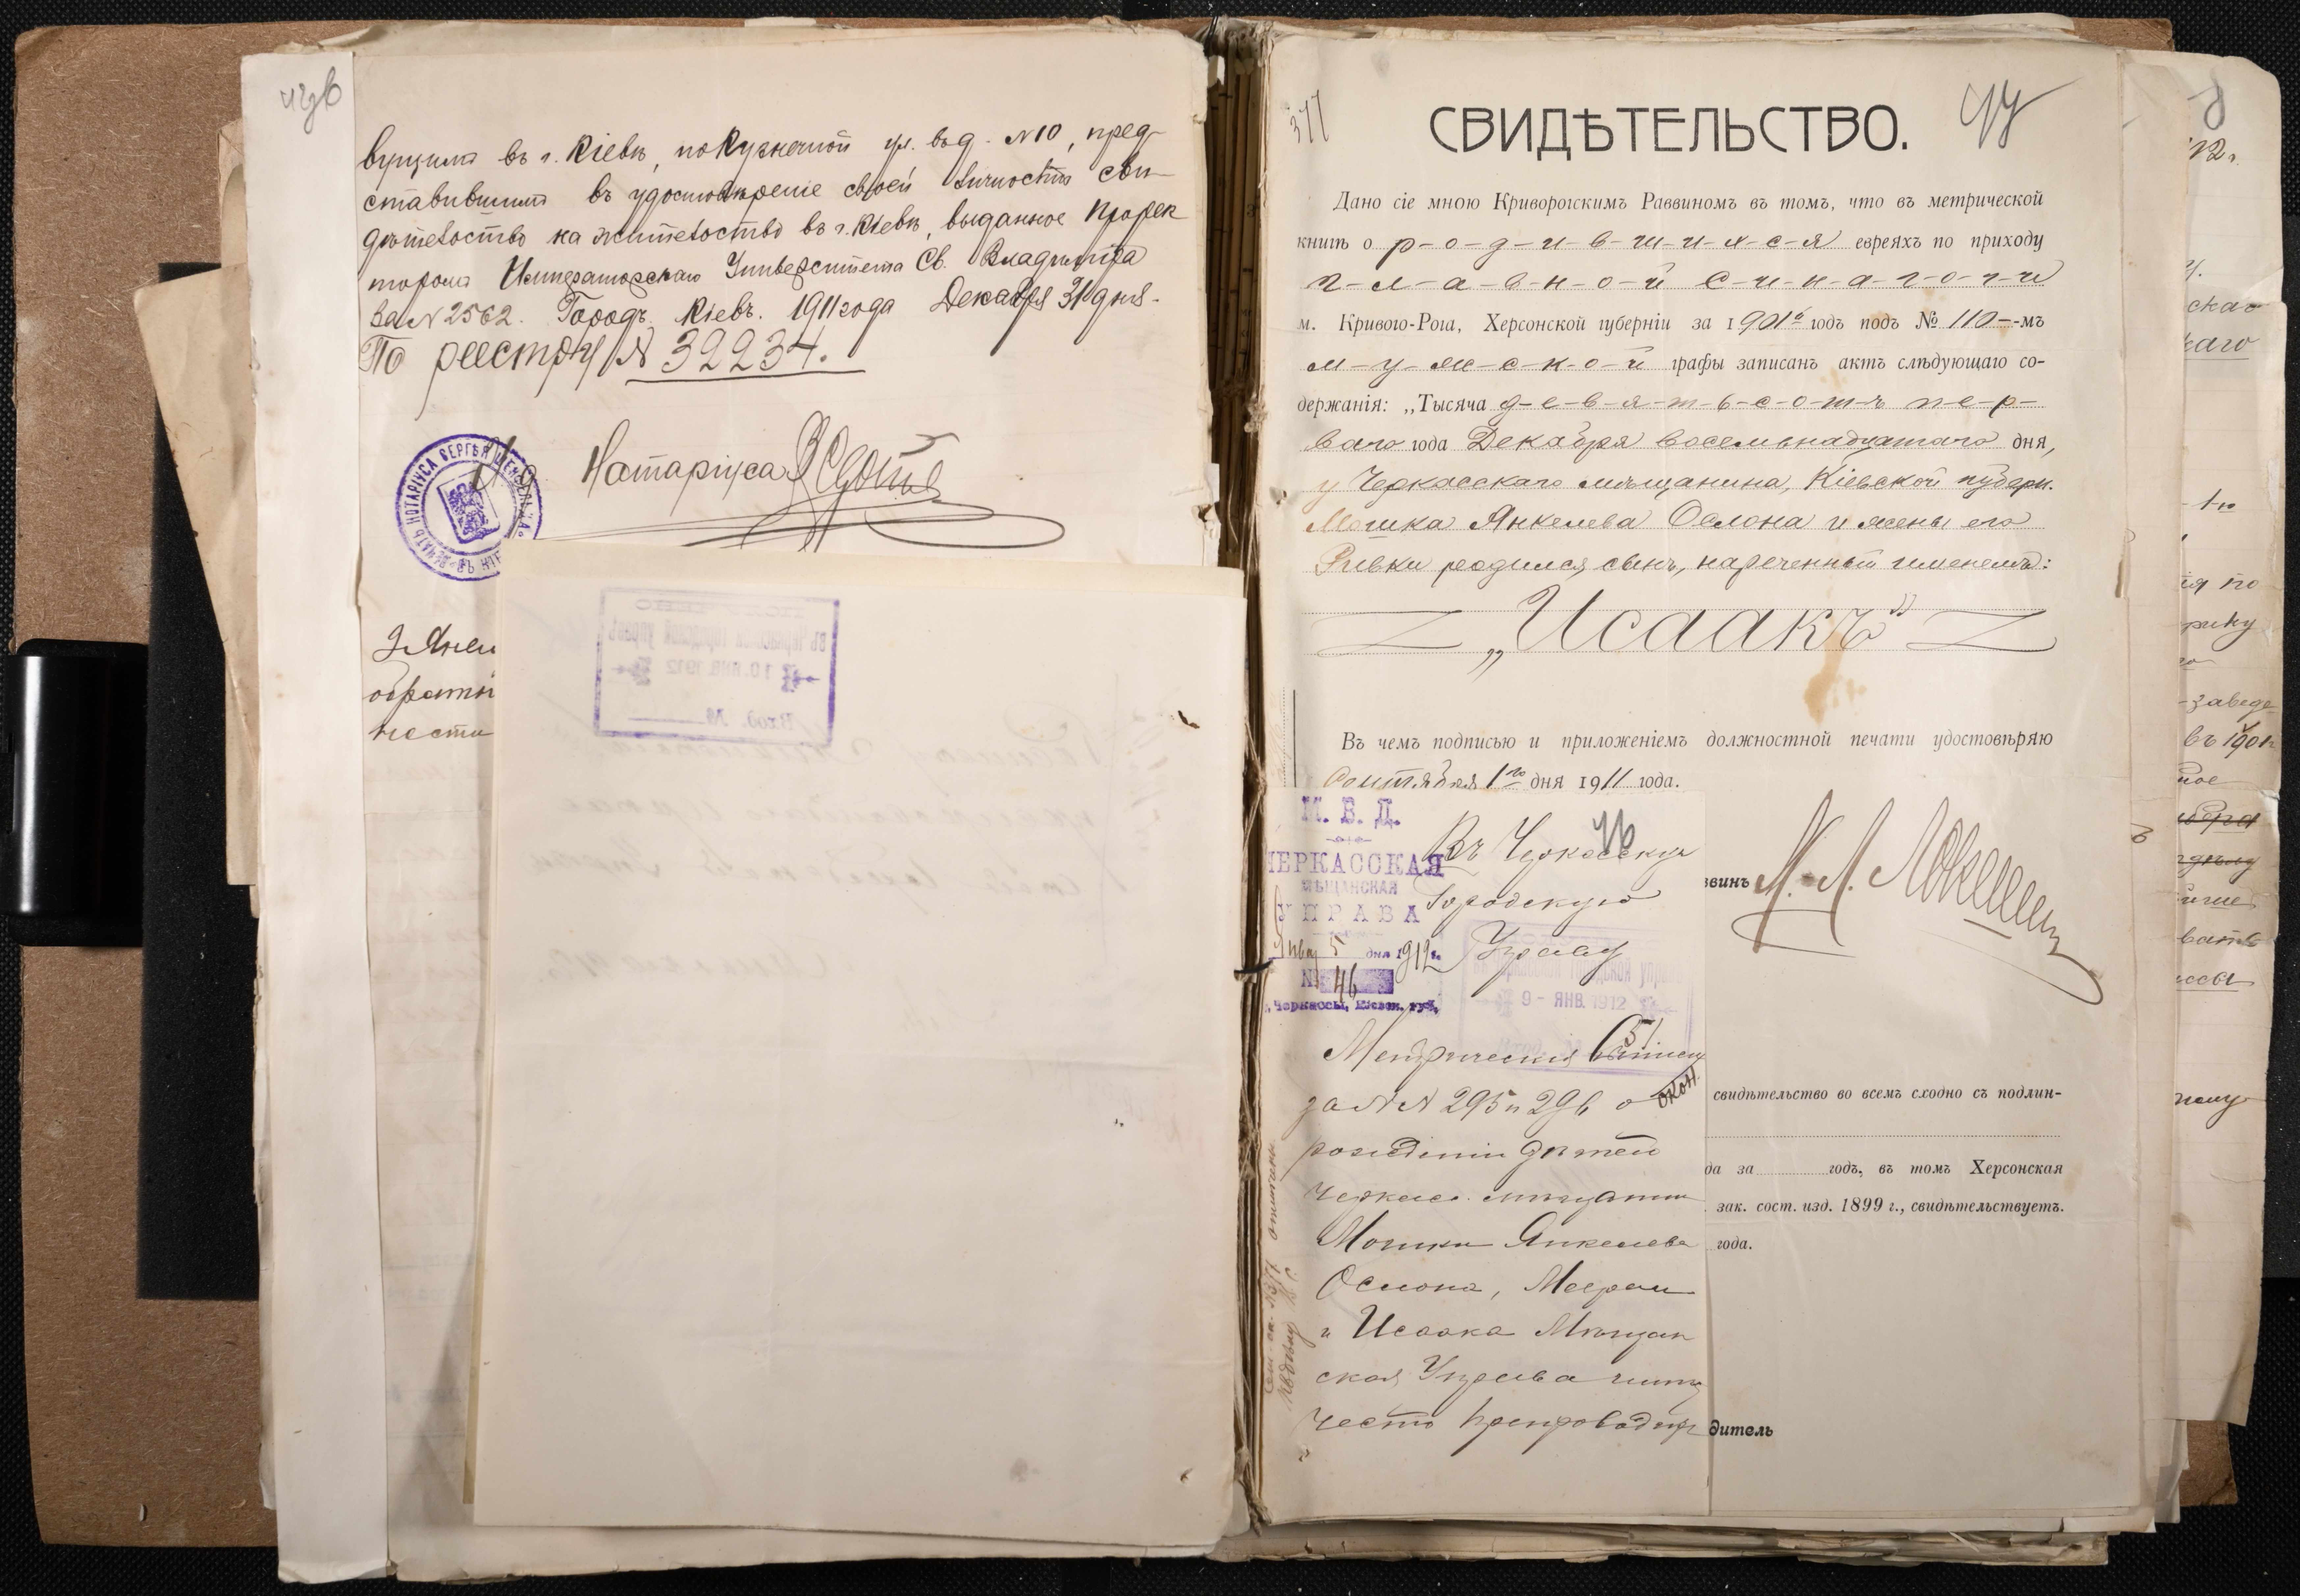 вущимъ въ г. Кіевѣ, по Кузнечной ул. въ д. №10, пред-
ставившимъ въ удостовѣреніе своей личности сви-
дѣтельство на жительство въ г. Кіевѣ, выданное Прорек
торомъ Императорскаго Университета Св. Владиміра
за №2562. Городъ Кіевъ. 1911 года Декабря 31 дня.
По реестру № 32234.
Нотаріуса
ПЕЧАТЬ НОТАРІУСА СЕРГѢЯ
въ Черкасской городской управѣ
10. ЯНВ. 1912
Вход. №
377
СВИДѢТЕЛЬСТВО.
Дано сіе мною Криворогскимъ Раввиномъ въ томъ, что въ метрической
книгѣ о р-о-д-и-в-ш-и-х-с-я евреяхъ по приходу
г-л-а-в-н-о-й с-и-н-а-г-о-г-и
м. Кривого-Рога, Херсонской губерніи за 1901й годъ подъ № 110--мъ
м-у-ж-с-к-о-й графы записанъ актъ слѣдующаго со-
держанія: „Тысяча д-е-в-я-т-ь-с-о-т-ъ п-е-р-
ваго года Декабря восемьнадцатаго дня,
у Черкасскаго мѣщанина, Кіевской губерн.
Мошка Янкелева Ослона и жены его
Ривки родился сынъ, нареченный именемъ:
„Исаакъ"
Въ чемъ подписью и приложеніемъ должностной печати удостовѣряю
Сентября 1го дня 1911 года.
М. В. Д.
ЧЕРКАССКАЯ
МѢЩАНСКАЯ
УПРАВА
Янв 5 дня 1912 г.
№ 46
г. Черкассы, Кіевск. губ.
46
Въ Черкасскую
Городскую
Управу
городской упр
9 - ЯНВ. 1912
51
Метрическія выписи
за №№ 295 и 296 о
рожденіи дѣтей
Черкас. мѣщанина
Мошки Янкелева
Ослона, Меера
и Исаака Мѣщан
ская Управа имѣ
честь препроводить
ввинъ
свидѣтельство во всемъ сходно съ подлин-
да за годъ, въ томъ Херсонская
зак. сост. изд. 1899 г., свидѣтельствуетъ.
года.
дитель